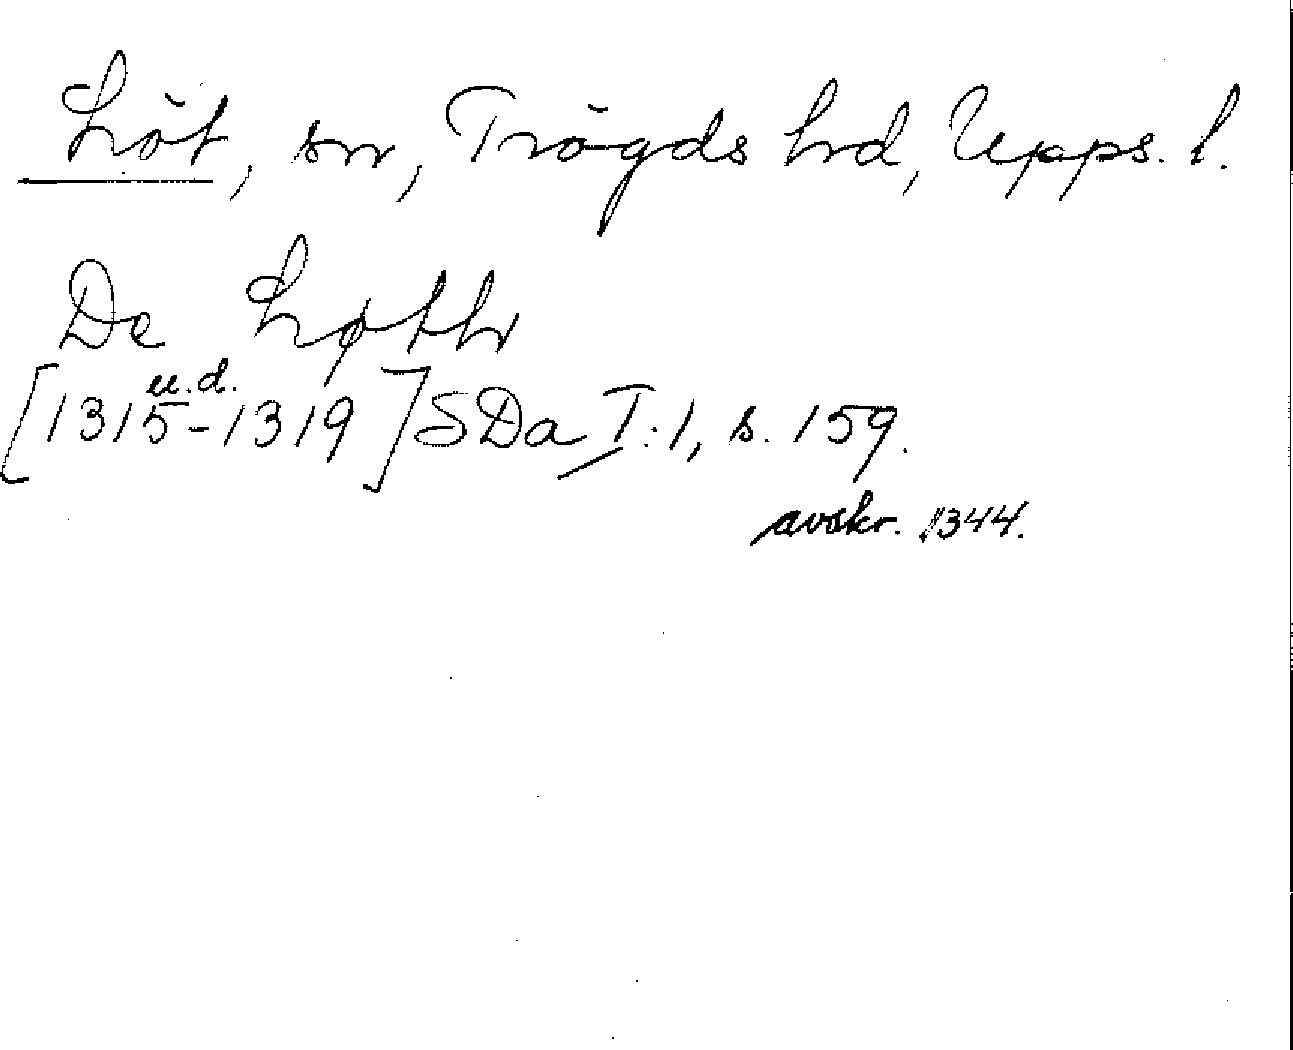 Löt, sn, Trögds hd, Upps. l.
De Løth
u.d.
[1315-1319] SDa I:1, s. 159.
avskr. 1344.